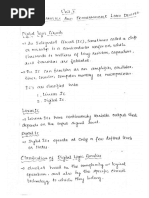 Unit-I
AND PROGRAMMABLE LOGIC DEVICES
Digital Logic Circuits
→ An Integrated Circuit (IC), Sometimes called a chip
or
which
thousands or millions of tiny resistors, capacitors,
and transistors are fabricated.
→ An IC can function as an amplifier, oscillator,
timer, counter, computer memory or microprocessor
IC's are classified into
1. Linear IC
2. Digital IC
Linear IC
→ Linear IC's have continuously variable output that
depends on the input signal level.
Digital IC
→ Digital IC's operate at only a few defined levels
or states.
Classification of Digital Logic Families
→ Classified based on the complexity of logical
operation and also by the specific circuit
technology to which they belong.